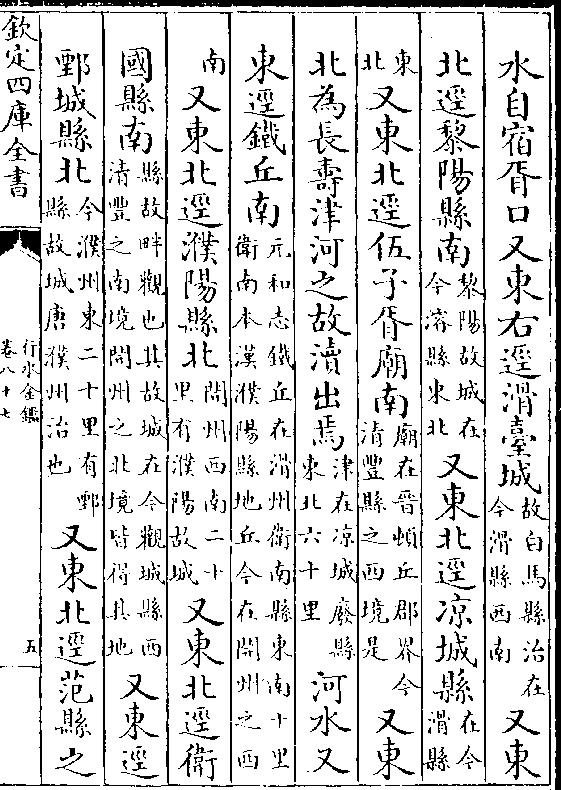 水自宿胥口又東右逕滑臺城故白馬縣治在今滑縣西南又東
北逕黎陽縣南黎陽故城在今濬縣東北又東北逕凉城縣在今滑縣
東北又東北逕伍子胥廟南廟在晉頓丘郡界今清豐縣之西境是又東
北為長壽津河之故瀆出焉津在凉城廢縣東北六十里河水又
東逕鐵丘南元和志鐵丘在滑州衛南縣東南十里衛南本漢濮陽縣地丘今在開州之西
南又東北逕濮陽縣北開州西南二十里有濮陽故城又東北逕衛
國縣南縣故畔觀也其故城在今觀城縣西清豐之南境開州之北境皆得其地又東逕
鄄城縣北今濮州東二十里有鄄縣故城唐濮州治也又東北逕范縣之
欽定四庫全書
行水金鑑
卷八十七
五